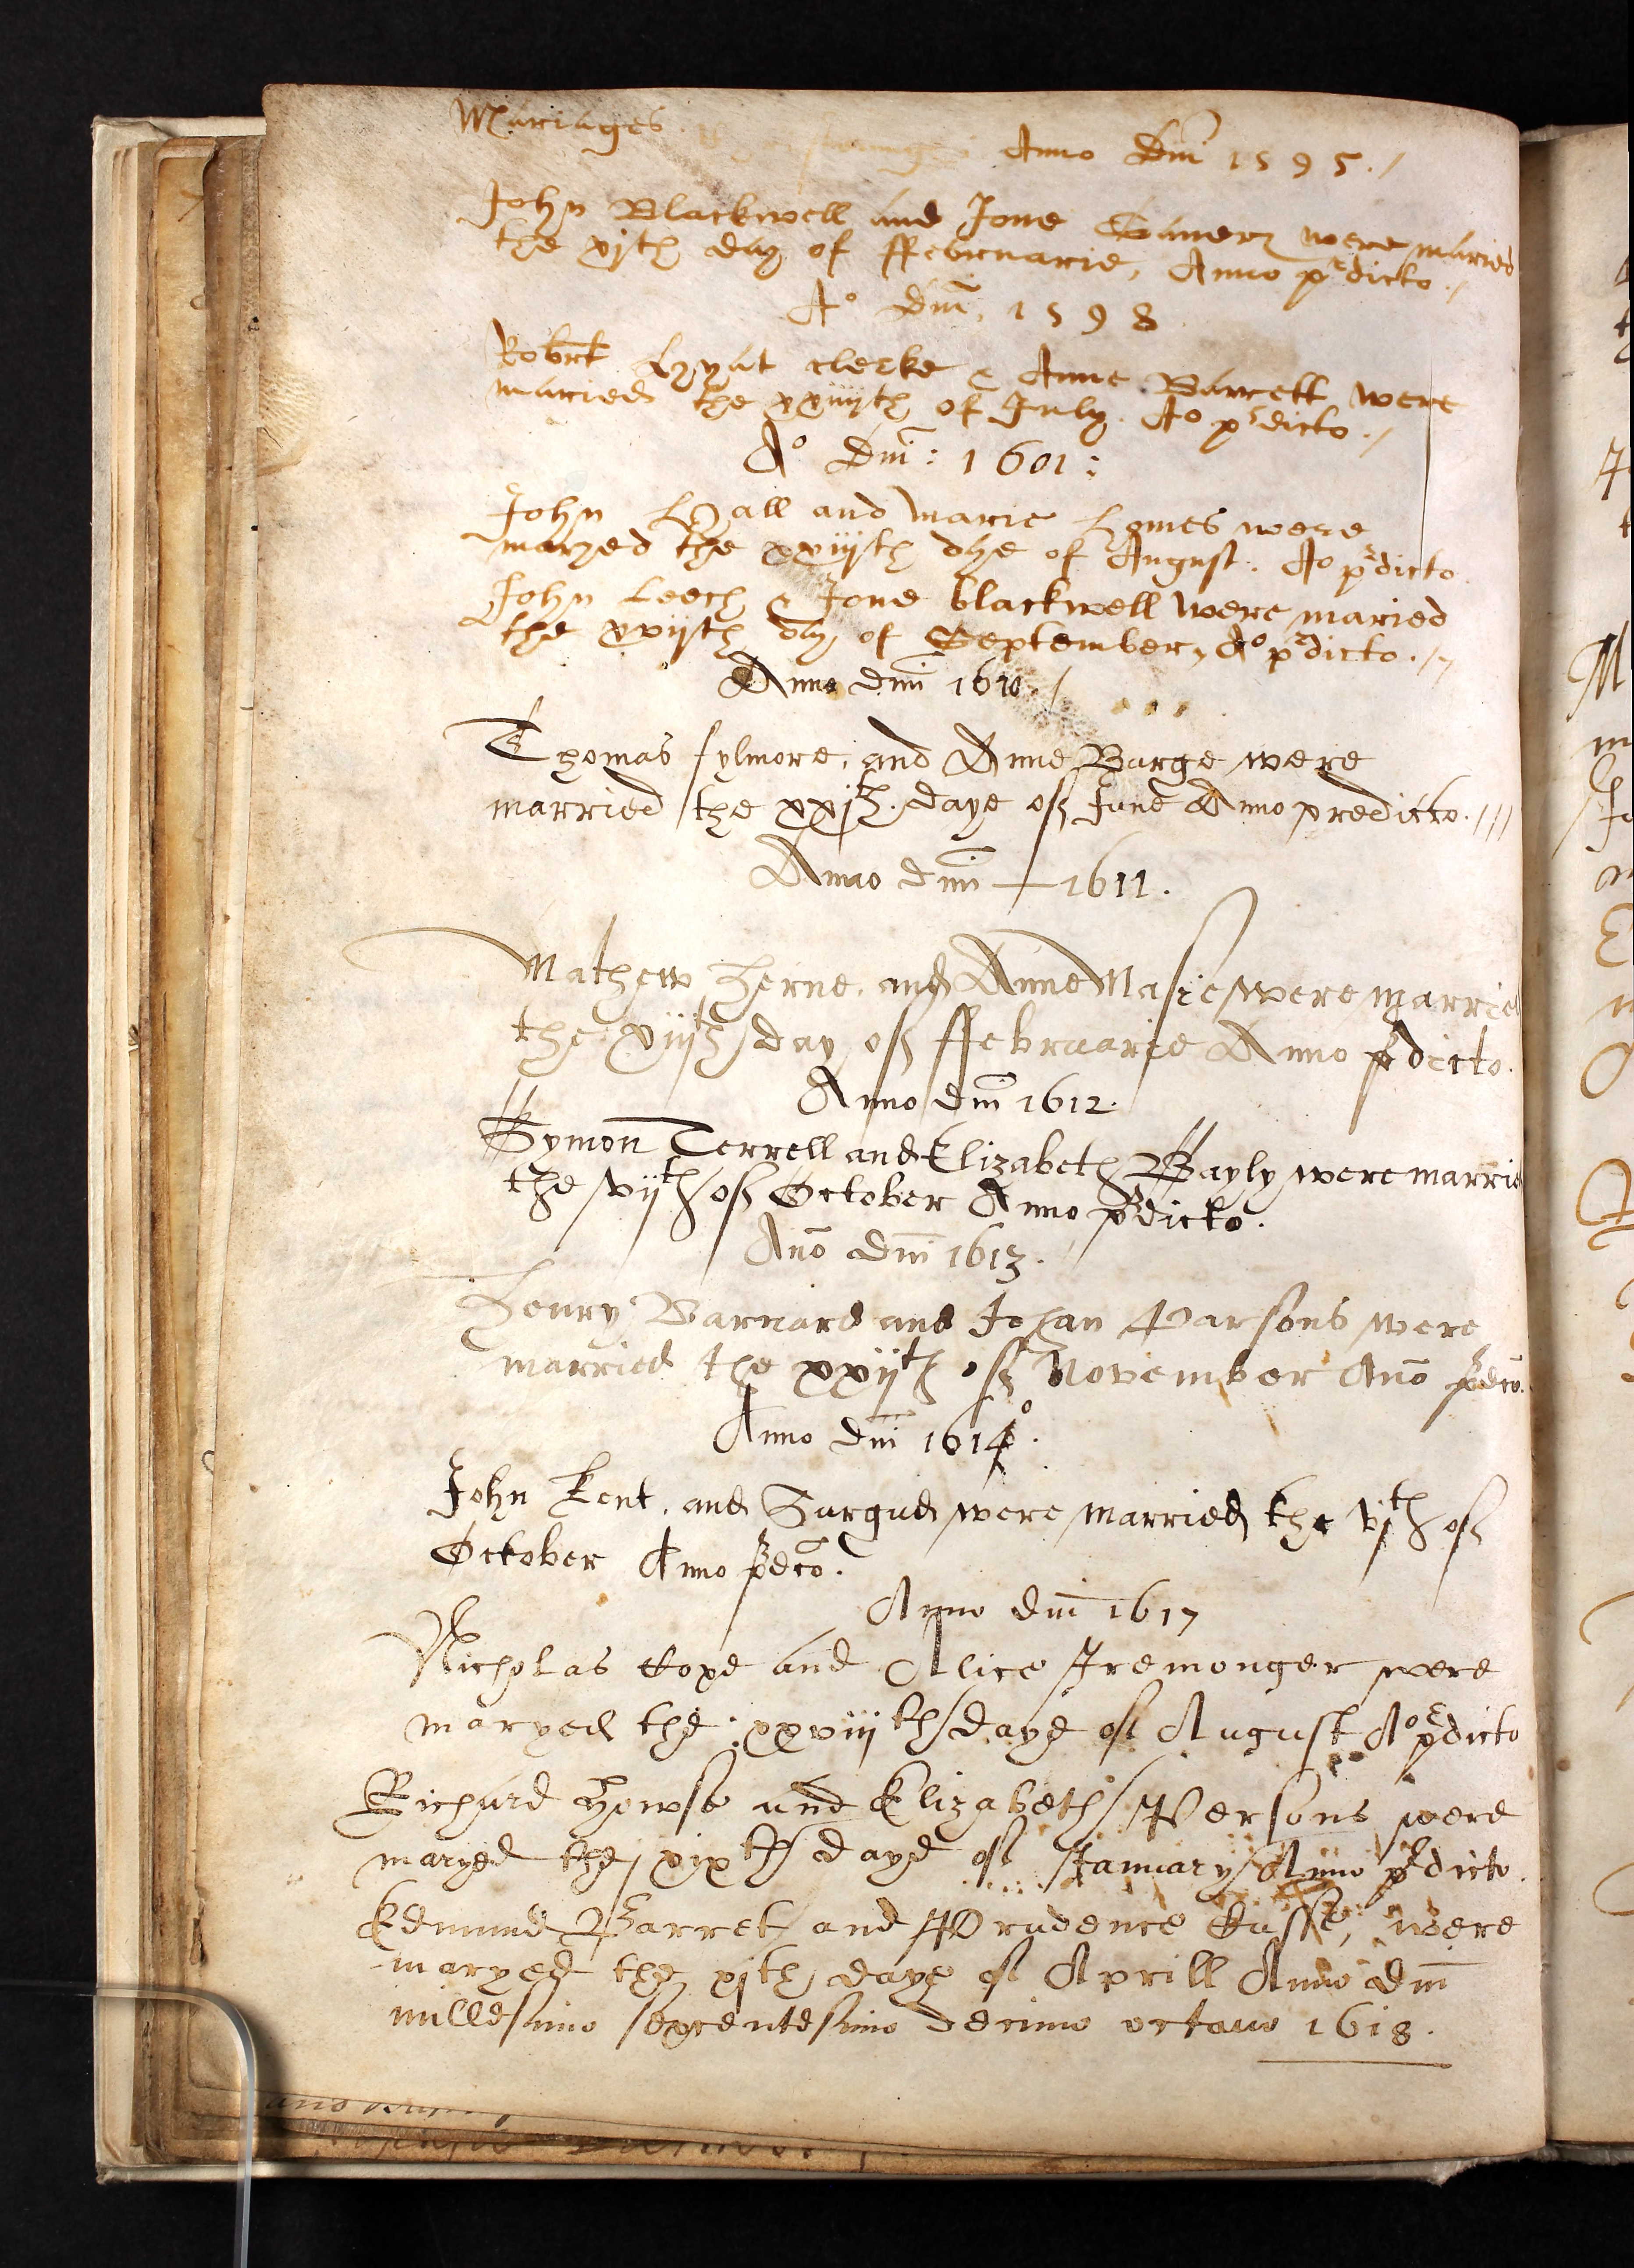 Mariages Anno Dm̄ 1595./
John Blackwell and Jone were maried
the xjth day of ffebruarie, Anno pʳdicto./
A° Dm̄. 1598
Robrt Lyat clerke & Anne Barrett were
maried the xxiiijth of July. A° pʳdicto./
A° Dm̄: 1601:
John Hall and Marie Homes were
maryed the xxiijth daye of August. A° pʳdicto.
John Leech & Jone blackwell were maried
the xvijth day of September, A° pʳdicto./
Anno dm̄ 1610./
Thomas fylmore, and Anne Barge were
married the xxjth. daye of June Anno predicto.///
Anno dm̄ — 1611.
Mathew Herne, and Anne Masie were married
the xiijth day of ffebruarie Anno pʳdicto.
Anno dm̄ 1612.
Symon Terrell and Elizabeth Bayly were married
the vijth of October Anno pʳdicto.
Anō dm̄ 1613.
Henry Barnard and Johan Parsons were
married the xxijth of November Anō pʳdcō.
Anno dm̄ 1614°.
John Kent, and Surgud were married the vjth of
October Anno pʳdcō.
Anno dm̄ 1617
Nicholas Cope and Alice Iremonger were
maryed the: xxviijth daye of August A° pʳdicto
Richard Howse and Elizabeth Persons were
maryed the xixth daye of January Anno pʳdicto.
Edmund Barret and Prudence were
maryed the xjth daye of Aprill Anno dm̄
millesimo sexcentesimo decimo octauo 1618.